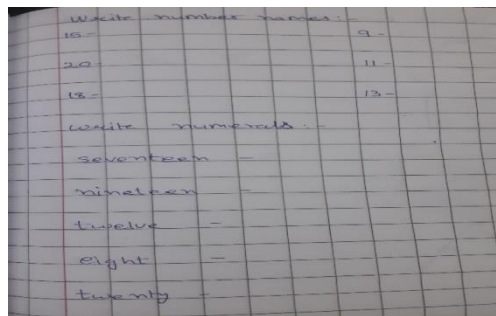 Write number names:-
15- 9-
20- 11-
18- 13-
Write numerals:-
seventeen -
nineteen -
twelve -
eight -
twenty -